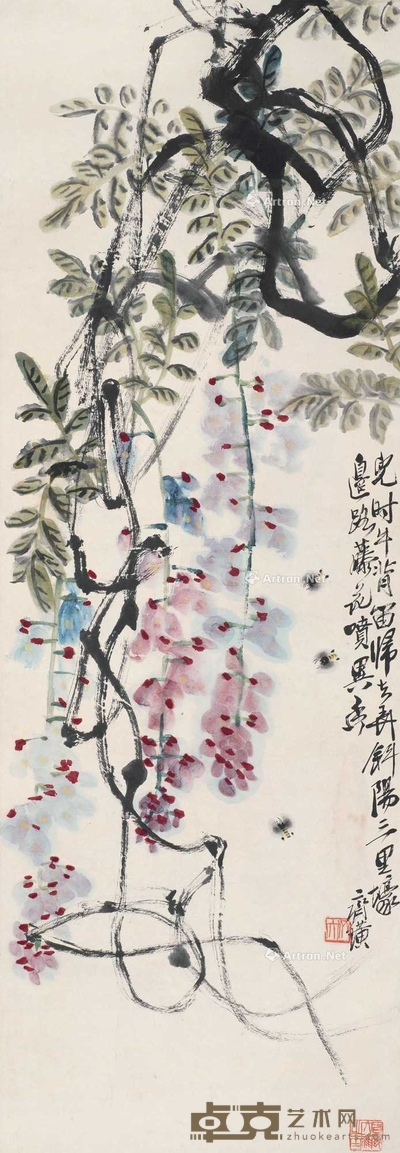 兒時牛背笛歸去弄斜陽三里壕
邊路藤花噴異香
齊璜
Artron.Net
Artron.Net
Artron.Net
卓克艺术网
zhuokearts.com